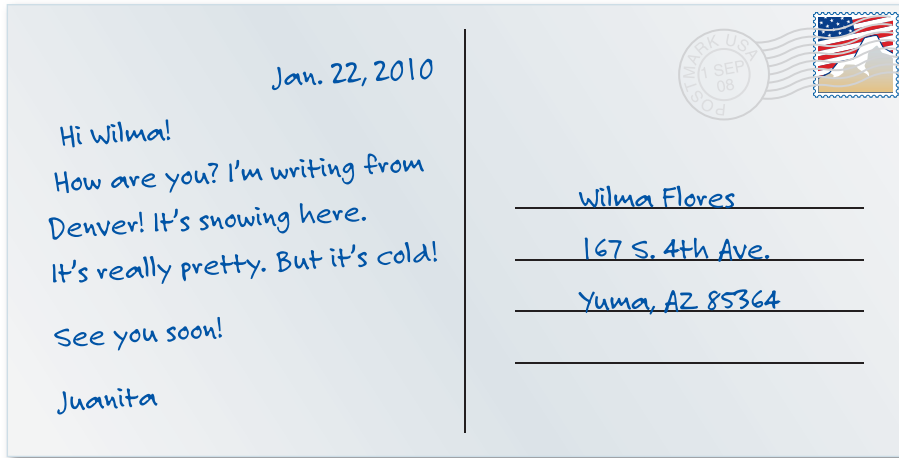 Jan. 22, 2010
Hi Wilma!
How are you? I'm writing from
Denver! It's snowing here.
It's really pretty. But it's cold!
See you soon!
Juanita
POSTMARK USA
1 SEP
08
Wilma Flores
167 S. 4th Ave.
Yuma, AZ 85364